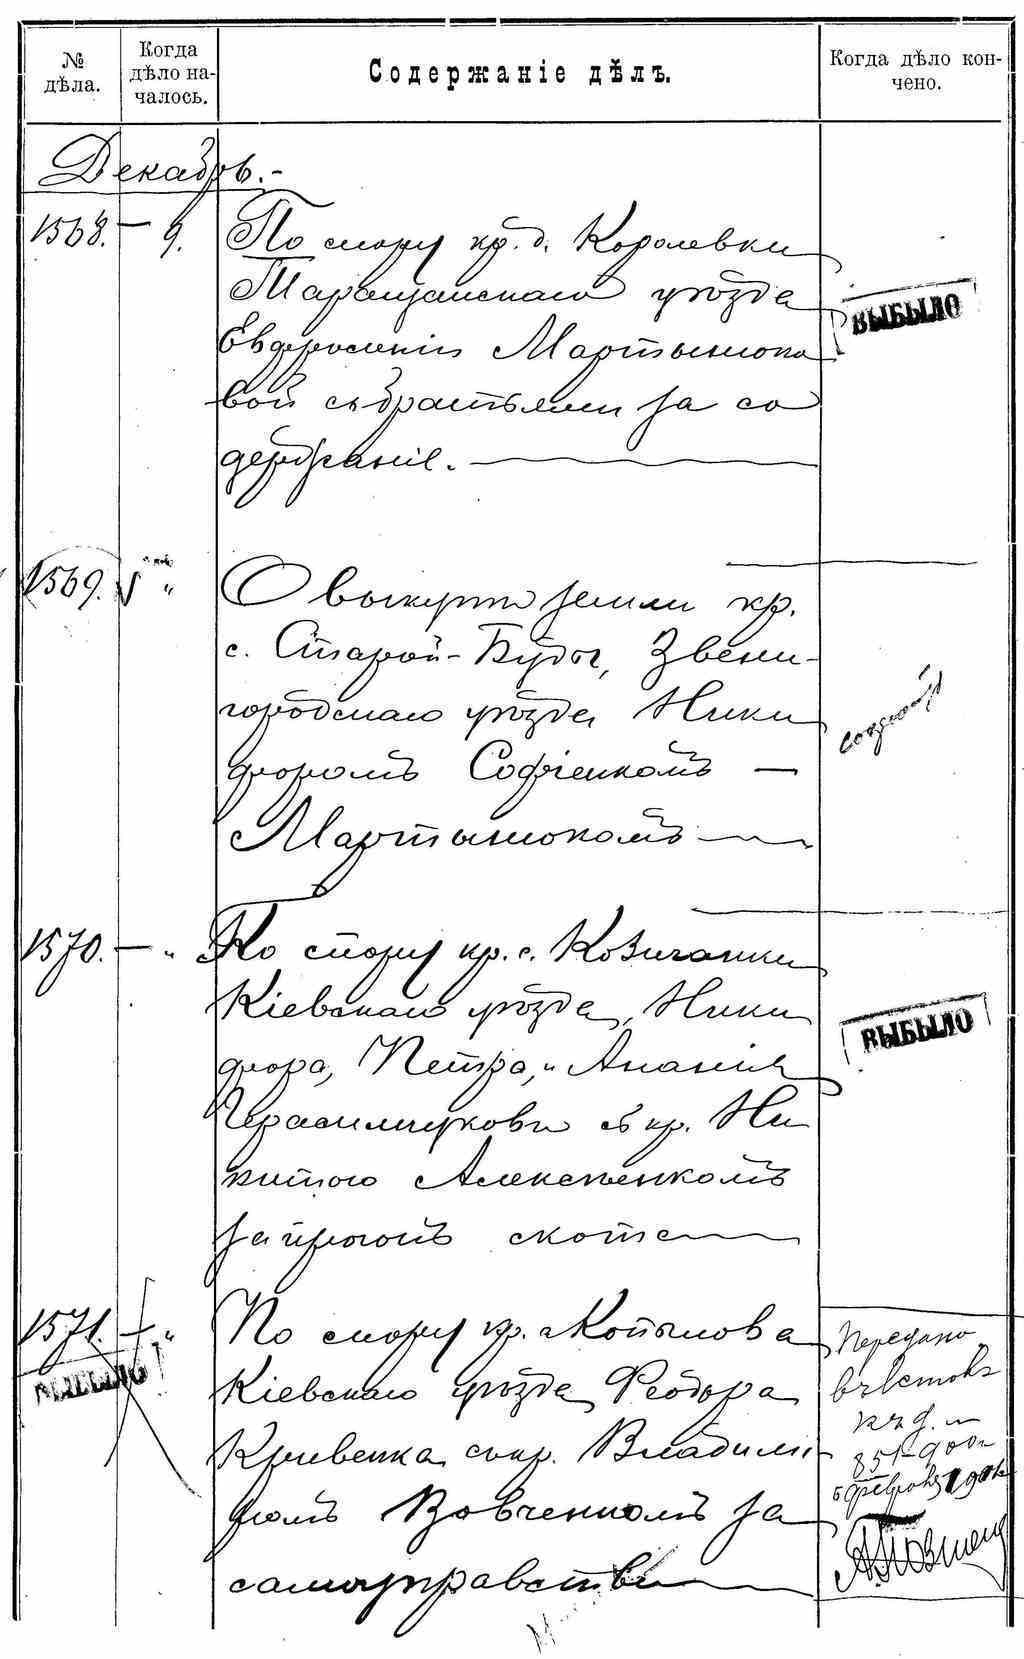 № дѣла.
Когда дѣло на-
чалось.
Содержаніе дѣлъ.
Когда дѣло кон-
чено.
Декабрь.-
1568. — 9. По спору кр. д. Королевки
Таращанскаго уѣзда
Евфросиніи Мартынюко
вой съ братьями за со
держаніе.
ВЫБЫЛО
1569. " О выкупѣ земли кр.
с. Старой-Буды, Звени-
городскаго уѣзда Ники
форомъ Софіенкомъ —
Мартынюкомъ
1570. — " По спору кр. с. Козичанки
Кіевскаго уѣзда, Ники
фора, Петра, и Ананія
Герасимчуковъ съ кр. Ни
китою Алексѣенкомъ
за прогонъ скота
ВЫБЫЛО
1571. — " По спору кр. с. Копылова
Кіевскаго уѣзда Ѳеодора
Кривенка съ кр. Владими
ромъ Вовченкомъ за
самоуправство
ВЫБЫЛО
Передано
къ д.
851 - 900
февраля 1901